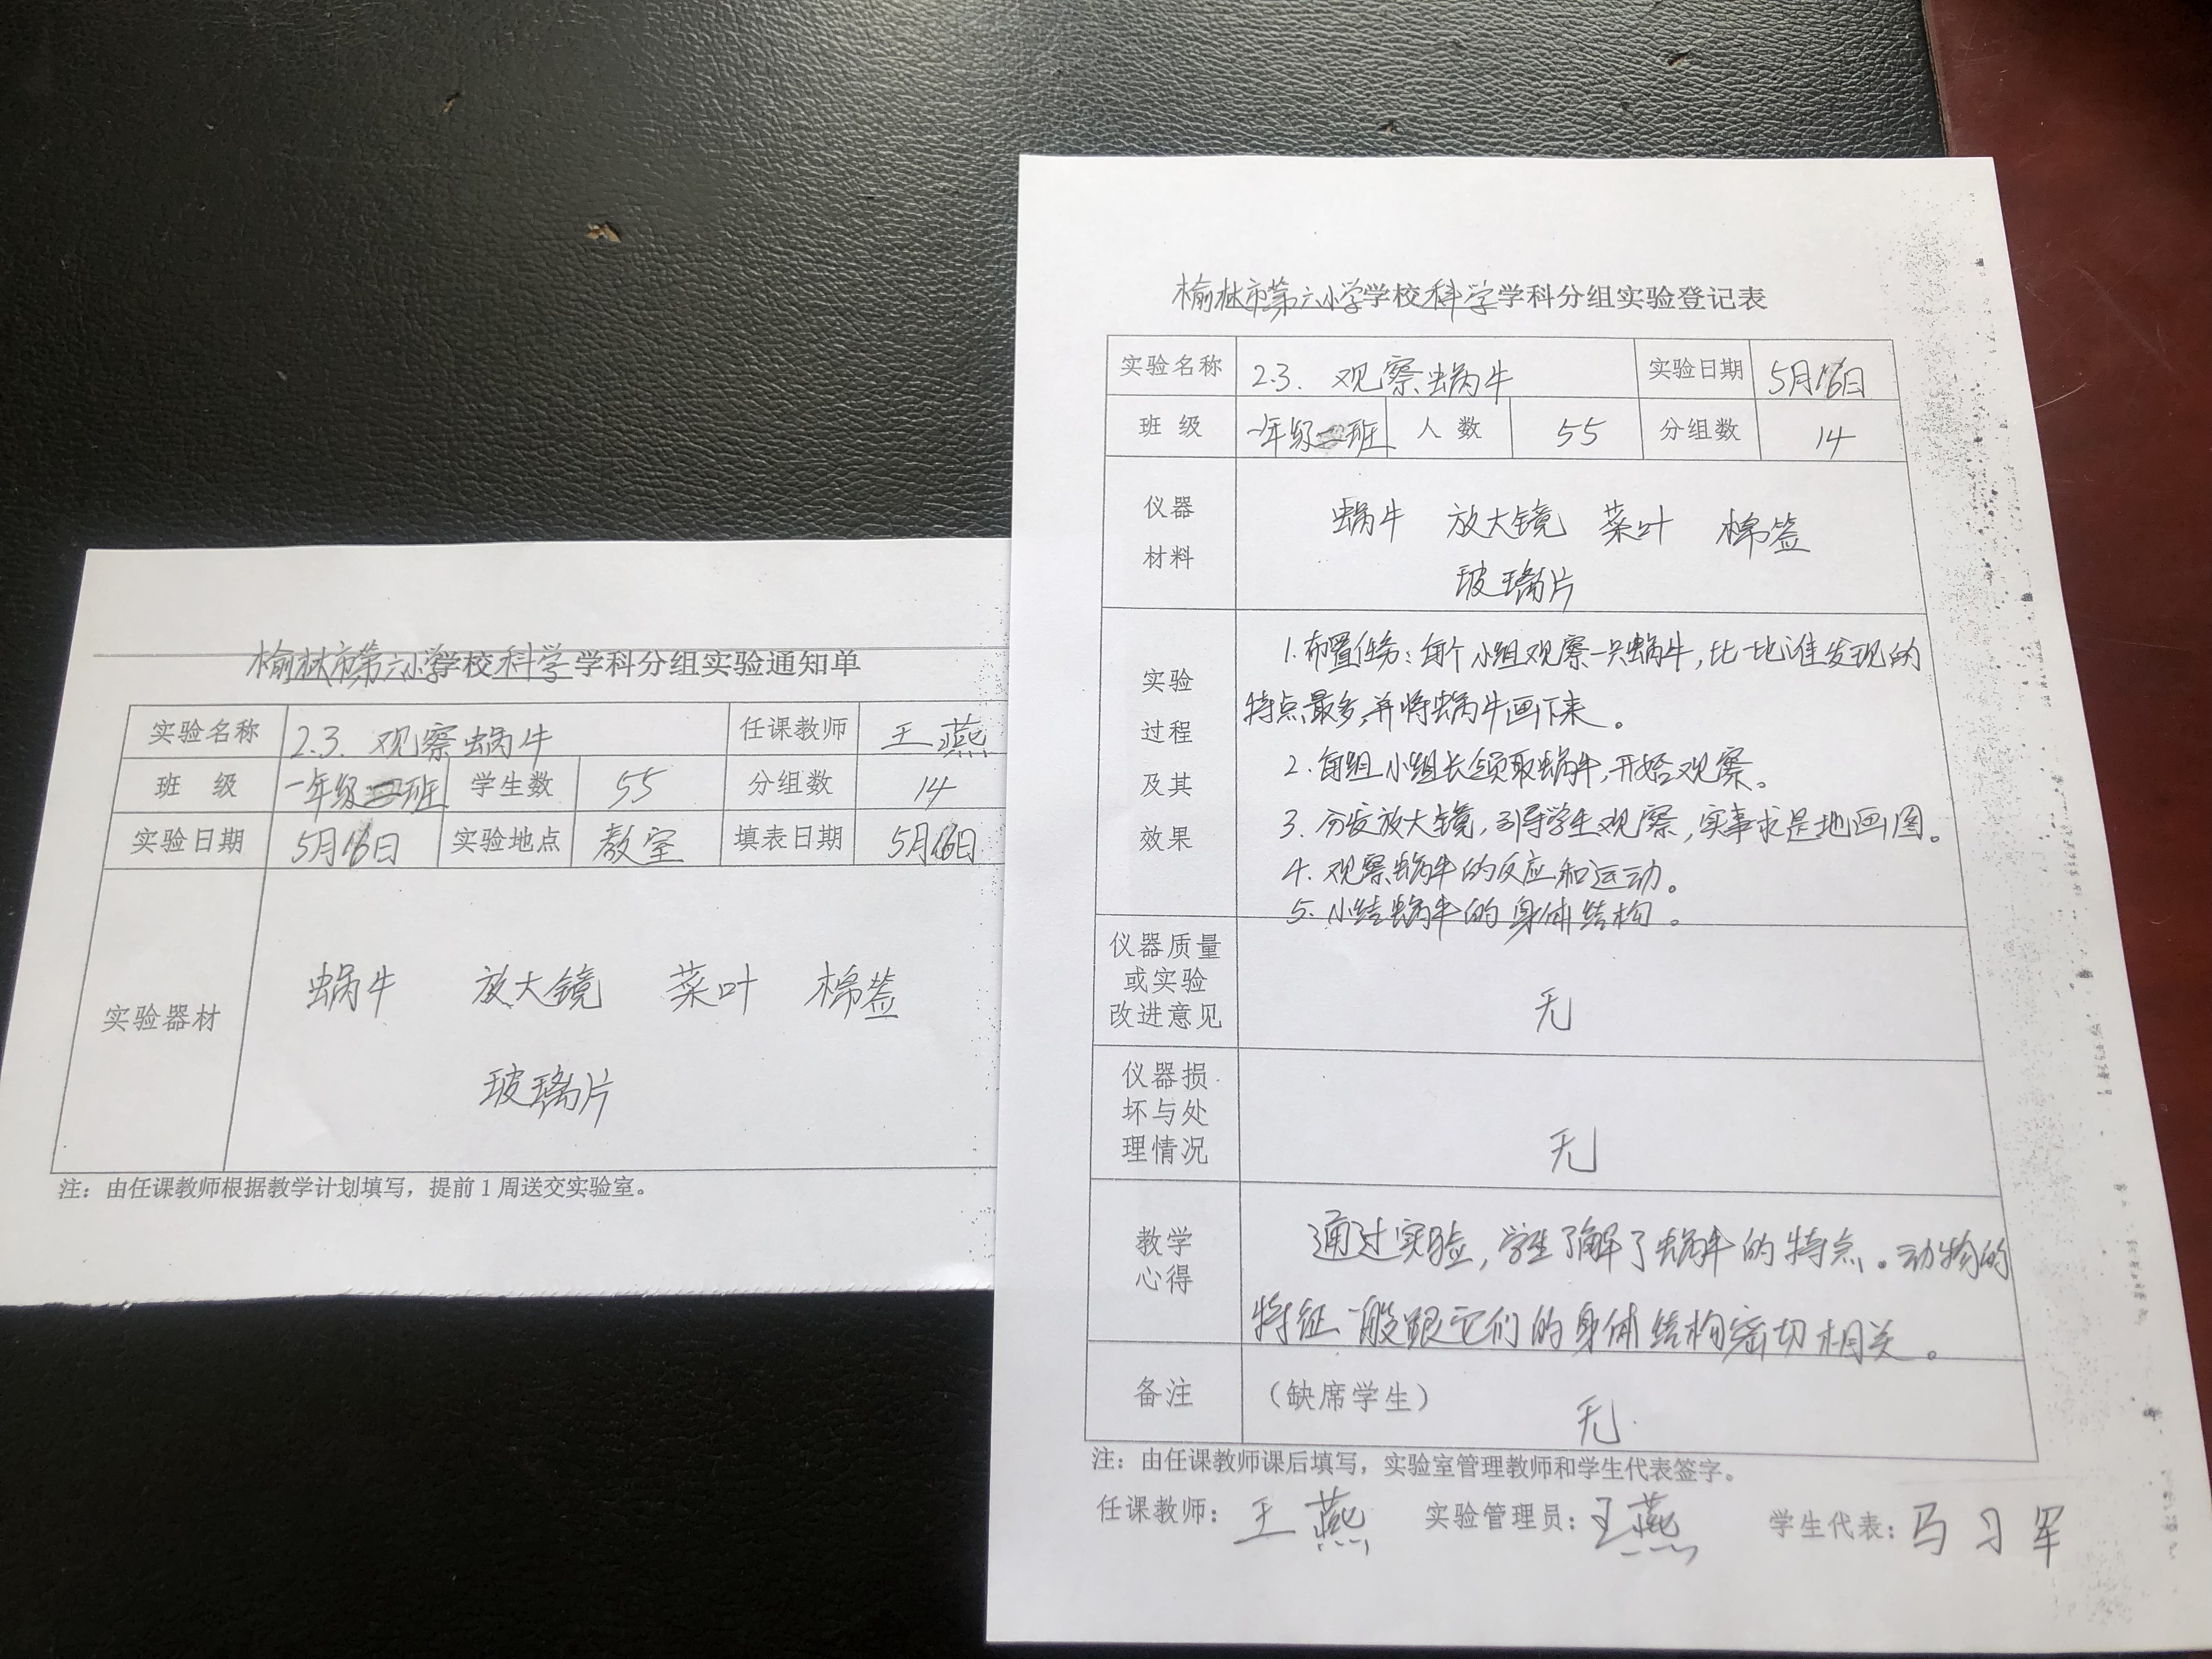 榆林市第六小学学校科学学科分组实验通知单
实验名称 2.3. 观察蜗牛 任课教师 王燕
班 级 一年级二班 学生数 55 分组数 14
实验日期 5月16日 实验地点 教室 填表日期 5月16日
实验器材
蜗牛 放大镜 菜叶 棉签
玻璃片
注：由任课教师根据教学计划填写，提前1周送交实验室。
榆林市第六小学学校科学学科分组实验登记表
实验名称 2.3. 观察蜗牛 实验日期 5月16日
班 级 一年级二班 人 数 55 分组数 14
仪器
材料
蜗牛 放大镜 菜叶 棉签
玻璃片
实验
过程
及其
效果
1.布置任务：每个小组观察一只蜗牛，比一比谁发现的
特点最多，并将蜗牛画下来。
2.每组小组长领取蜗牛，开始观察。
3.分发放大镜，引导学生观察，实事求是地画图。
4.观察蜗牛的反应和运动。
5.小结蜗牛的身体结构。
仪器质量
或实验
改进意见
无
仪器损
坏与处
理情况
无
教学
心得
通过实验，学生了解了蜗牛的特点。动物的
特征一般跟它们的身体结构密切相关。
备注 （缺席学生） 无
注：由任课教师课后填写，实验室管理教师和学生代表签字。
任课教师：王燕 实验管理员：王燕 学生代表：马习军